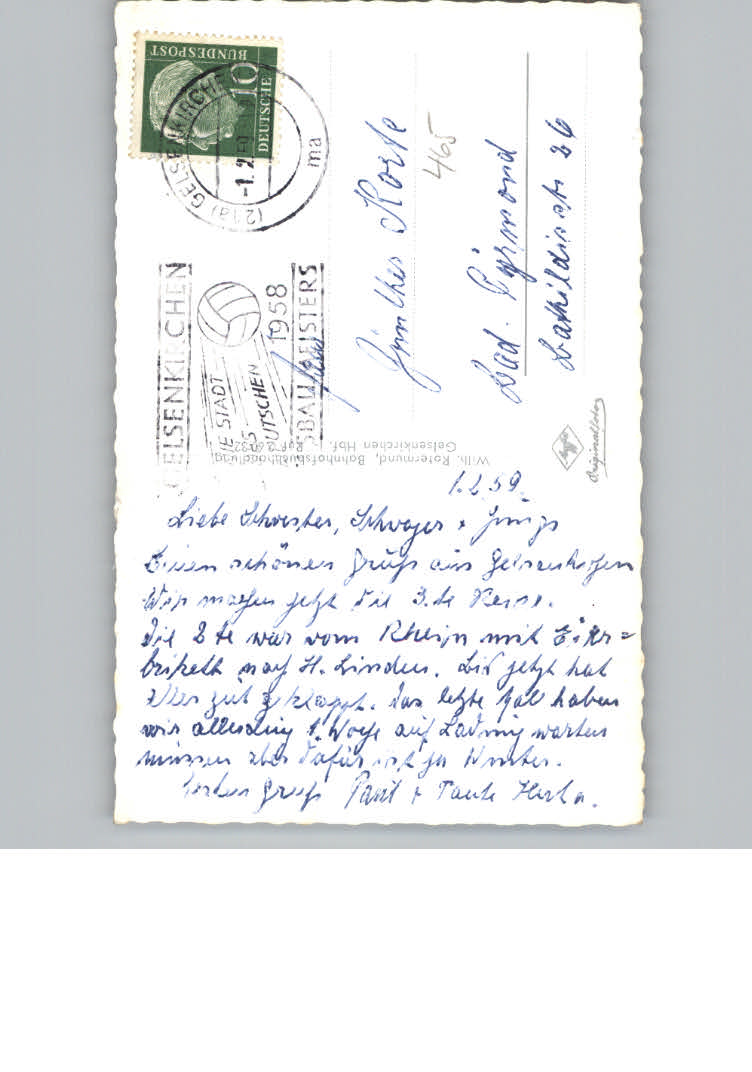 DEUTSCHE
BUNDESPOST
10
(21a) GELSENKIRCHEN
-1.2.59
ma
GELSENKIRCHEN
DIE STADT
DES
DEUTSCHEN
FUSSBALLMEISTERS
1958
Familie
Günther Korte
465
Bad. Pyrmond
Bathildisstr 26
Agfa
Originalfoto
Wilh. Rotermund, Bahnhofsbuchhandlung
Gelsenkirchen Hbf.
1.2.59.
Liebe Schwester, Schwager + Jungs
Einen schönen Gruß aus Gelsenkirchen
Wir machen jetzt die 3.te Reise.
Die 2te war vom Rhein mit Eier=
brikett nach H. Linden. Bis jetzt hat
Alles gut geklappt. Das letzte Mal haben
wir allerding 1. Woche auf Ladung warten
müssen aber dafür ist ja Winter.
Gruß Paul + Tante Herta.